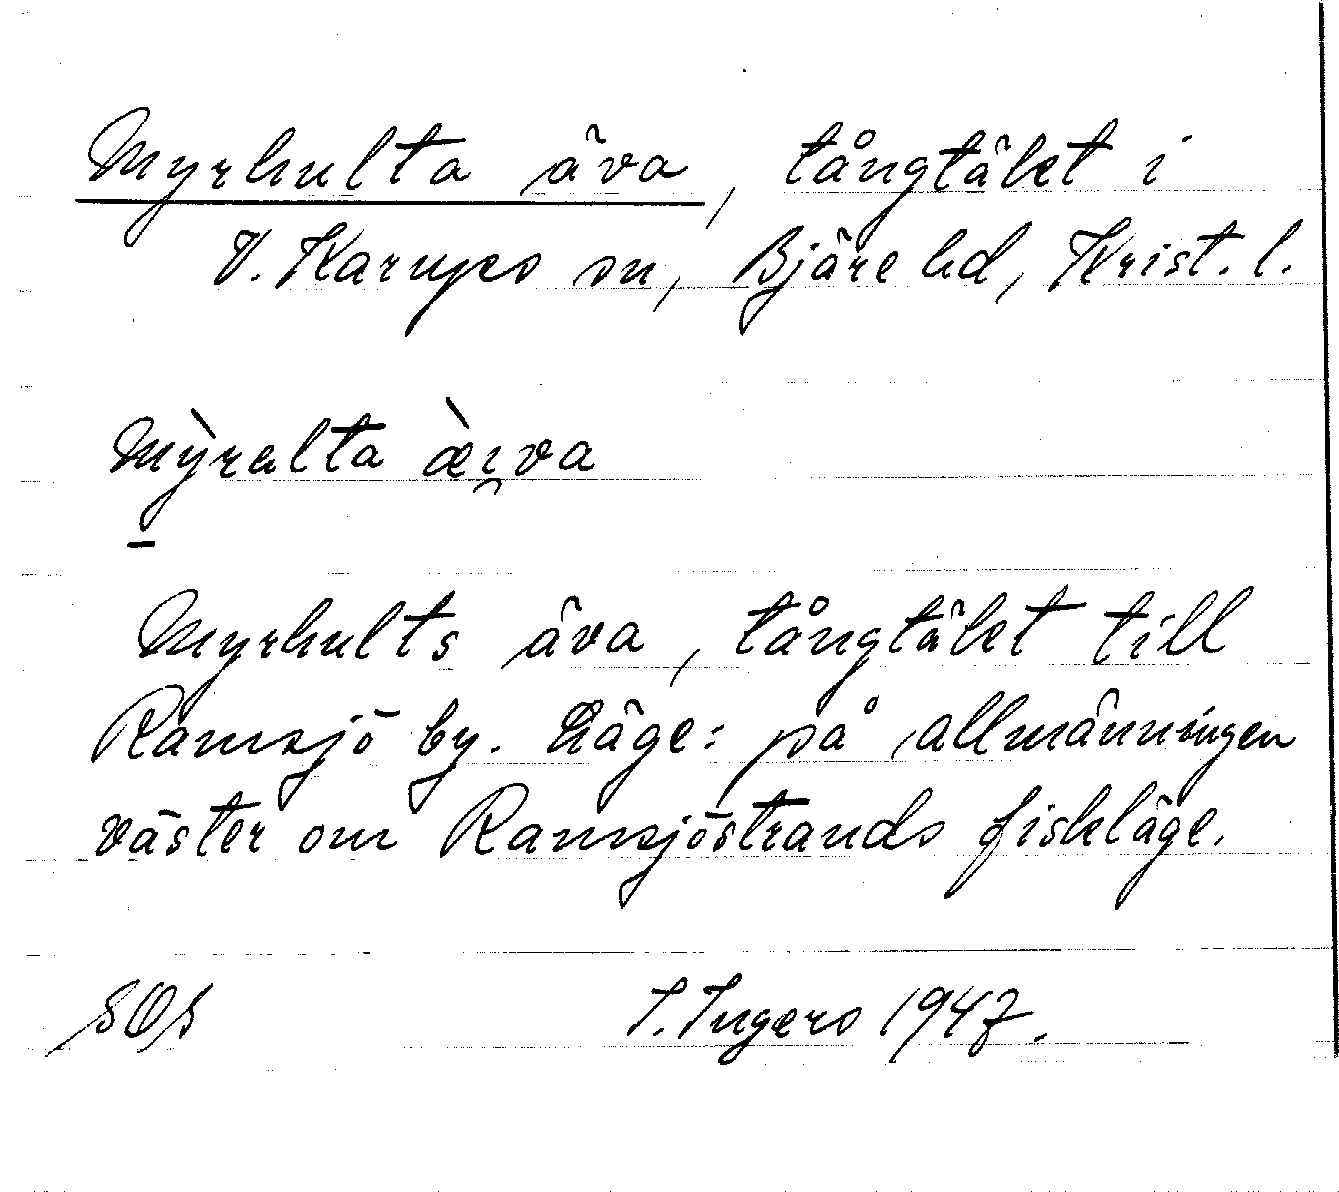 Myrhulta äva, tångtäket i
V. Karups sn, Bjäre hd, Krist. l.
Mỳralta æ̀ı̯va
Myrhults äva, tångtäket till
Ramsjö by. Läge: på allmänningen
väster om Ramsjöstrands fiskläge.
SOS I. Ingers 1947.